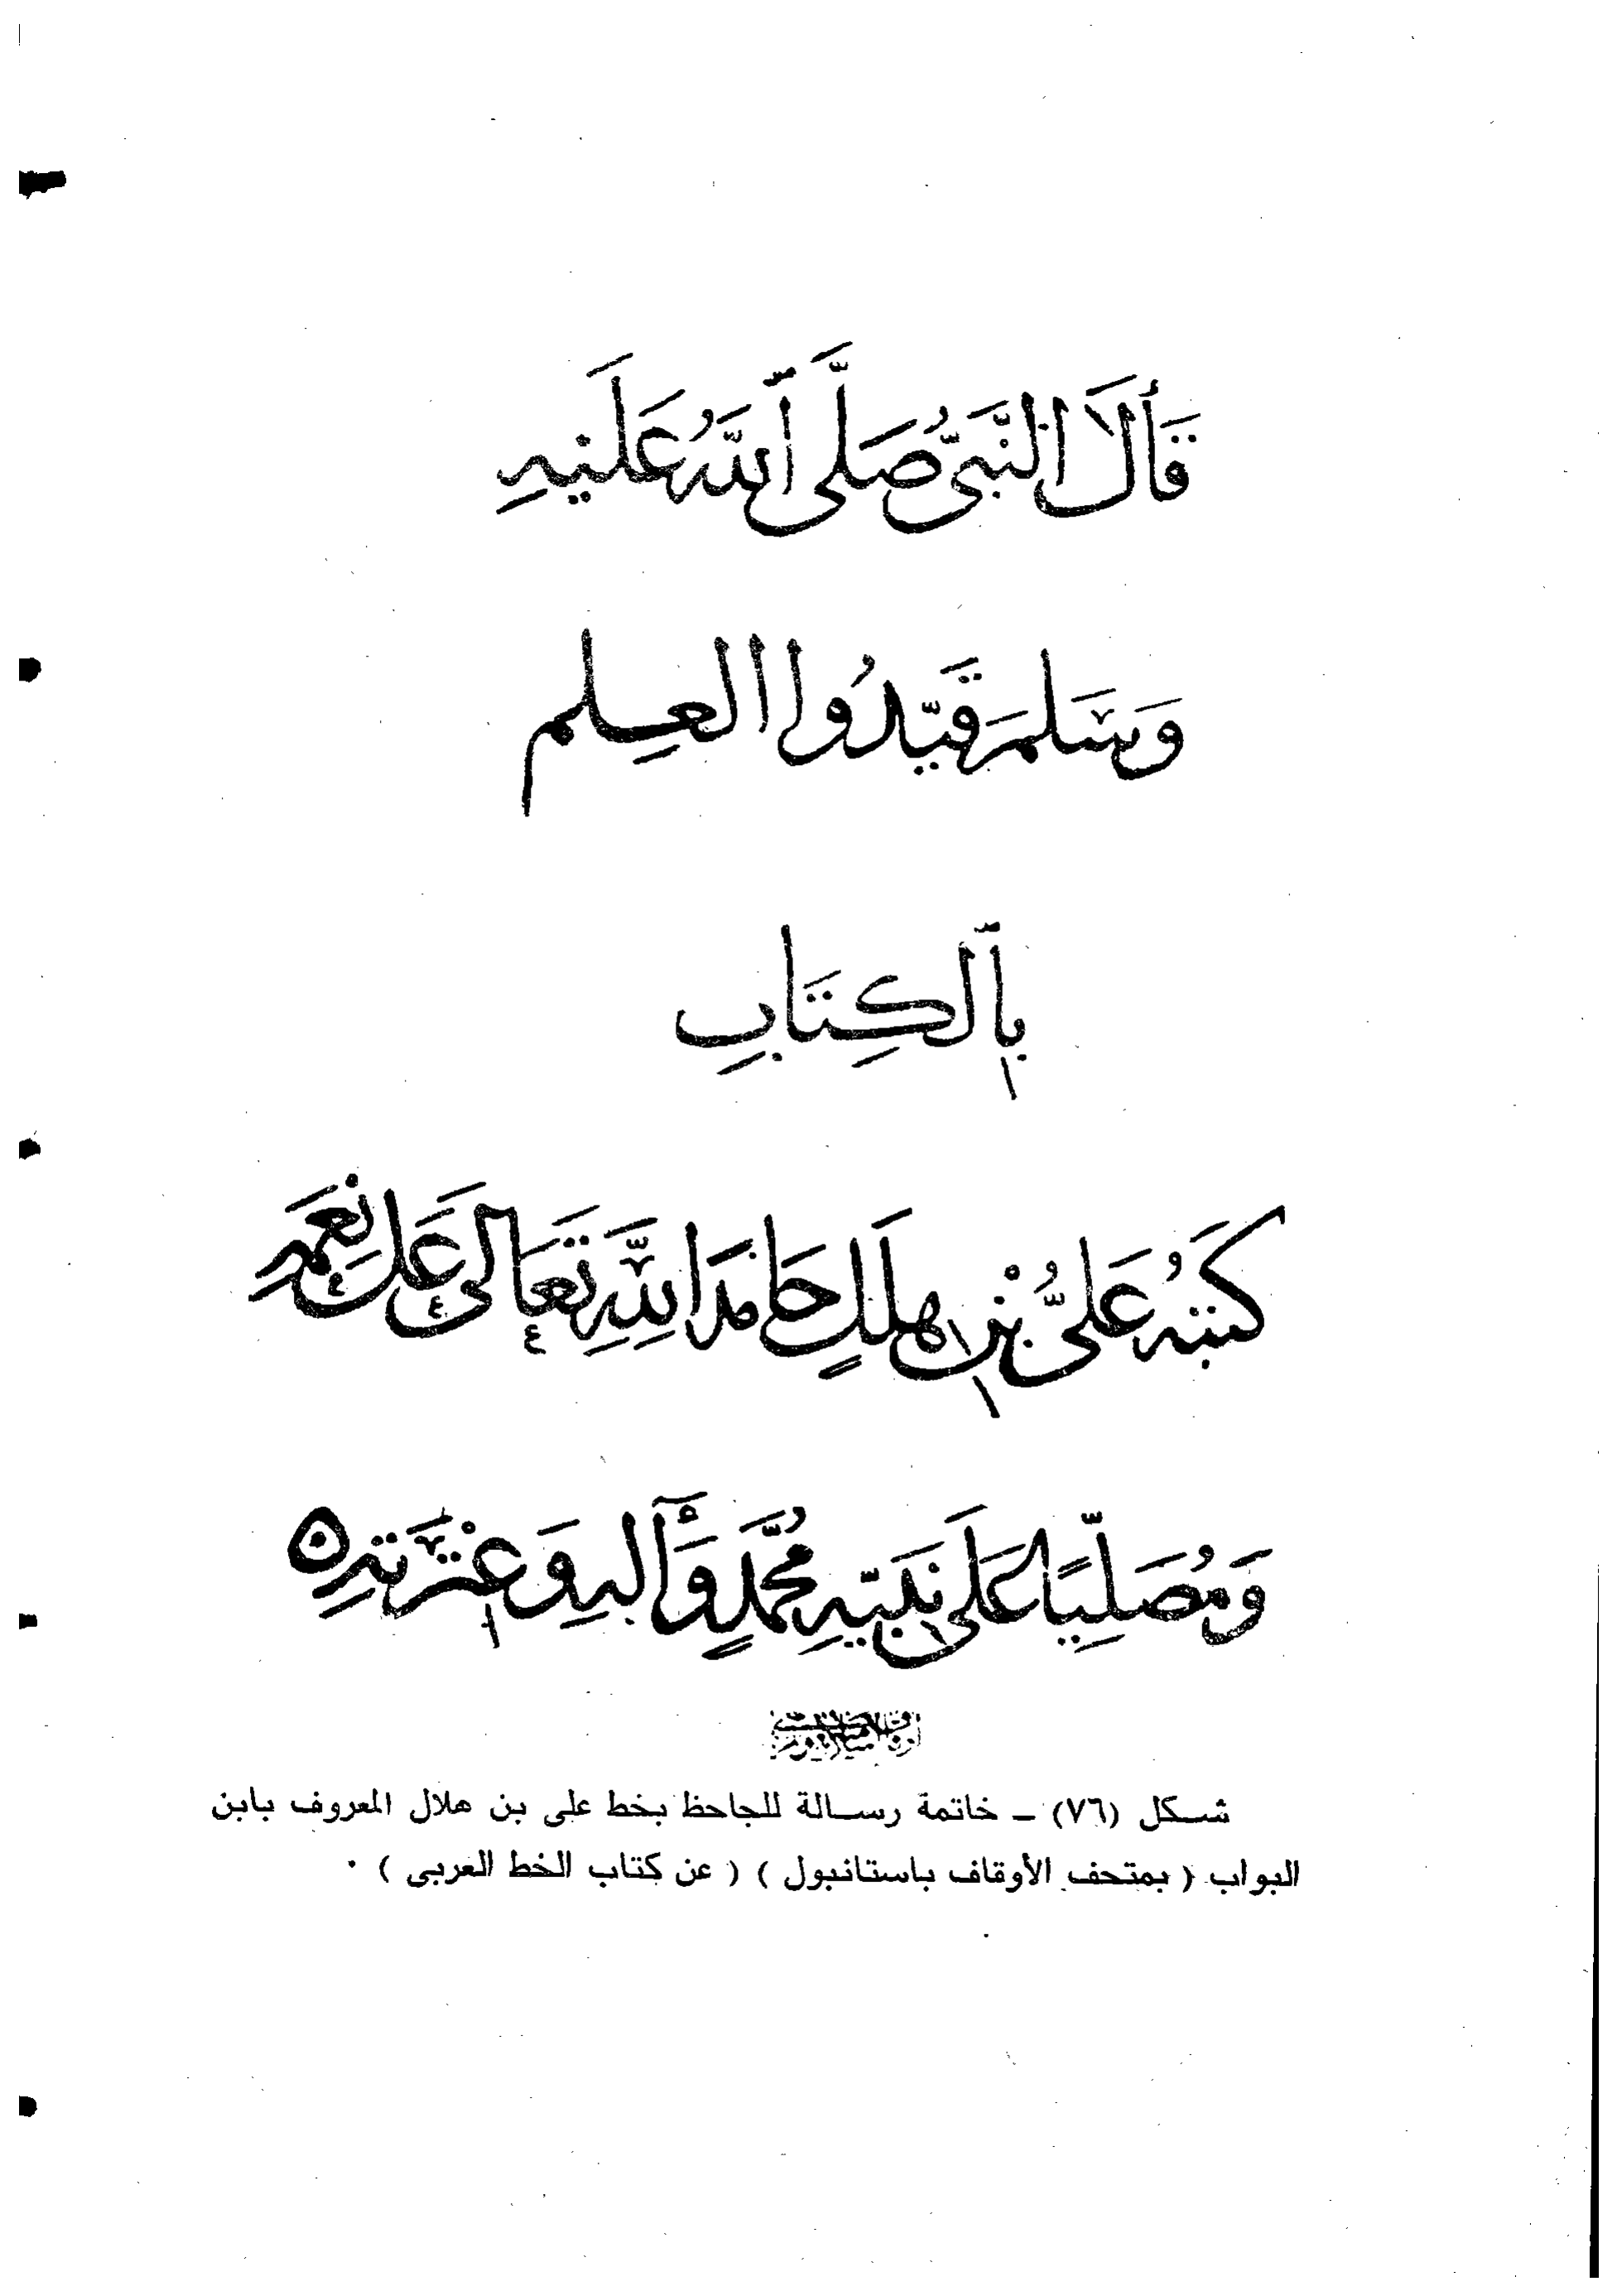 قَالَ النَّبِىُّ صَلَّى ٱللَّهُ عَلَيْهِ
وَسَلَّمَ قَيِّدُوا العِلم
بِٱلكِتَابِ
كَتَبَهُ عَلىُّ بْنُ هِلَلٍ حَامِدًا لِلَّهِ تَعَالَى عَلَى نِعَمِهِ
وَمُصَلِّيًا عَلَى نَبِيِّهِ مُحَمَّدٍ وَآلِهِ وَعِتْرَتِهِ ه
شكل (٧٦) – خاتمة رسالة للجاحظ بخط على بن هلال المعروف بابن
البواب ( بمتحف الأوقاف باستانبول ) ( عن كتاب الخط العربى ) ٠